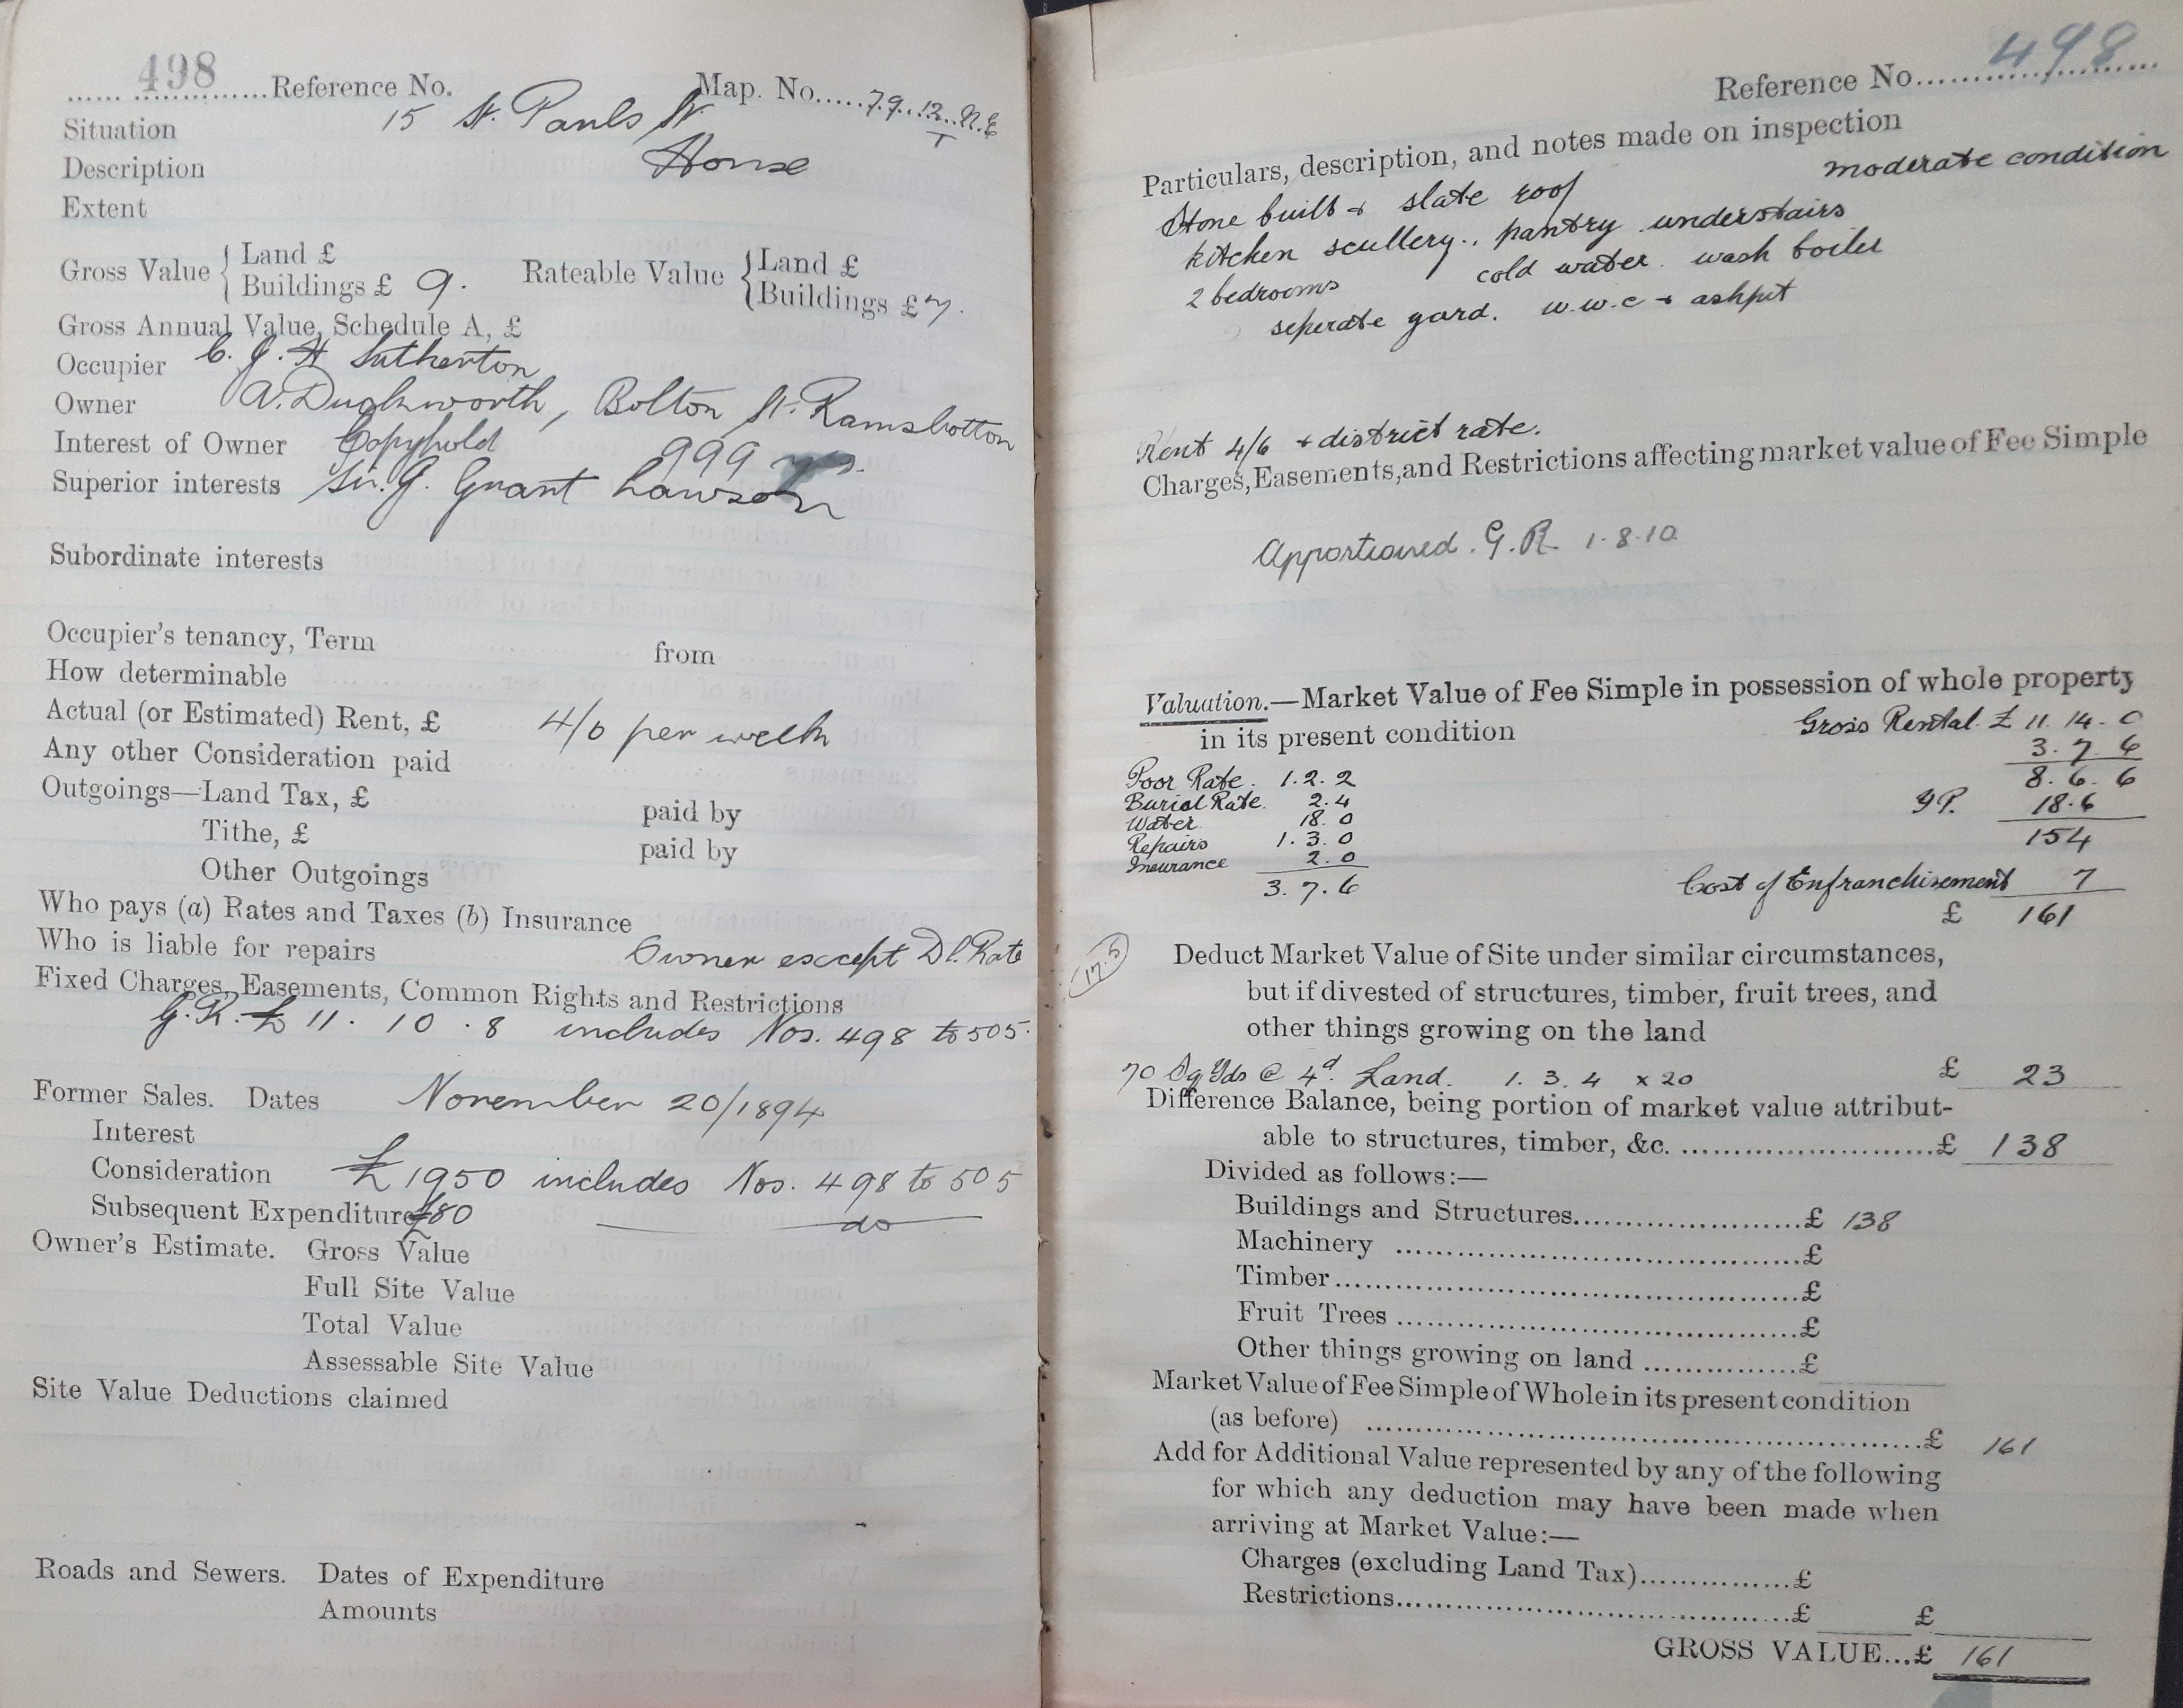 498 Reference No. Map. No. 79.12.N.E
Situation 15 St. Pauls St.
Description House
Extent
Gross Value Land £
Buildings £ 9. Rateable Value Land £
Buildings £ 7.
Gross Annual Value, Schedule A, £
Occupier
Owner A. Duckworth, Bolton St. Ramsbottom
Interest of Owner Copyhold 999 yrs.
Superior interests Sir. G. Grant Lawson
Subordinate interests
Occupier's tenancy, Term from
How determinable
Actual (or Estimated) Rent, £ 4/6 per week
Any other Consideration paid
Outgoings—Land Tax, £ paid by
Tithe, £ paid by
Other Outgoings
Who pays (a) Rates and Taxes (b) Insurance
Who is liable for repairs Owner except Dt. Rate
Fixed Charges, Easements, Common Rights and Restrictions
G.R. £ 11. 10. 8 includes Nos. 498 to 505.
Former Sales. Dates November 20/1894
Interest
Consideration £1950 includes Nos. 498 to 505
Subsequent Expenditure £80 do
Owner's Estimate. Gross Value
Full Site Value
Total Value
Assessable Site Value
Site Value Deductions claimed
Roads and Sewers. Dates of Expenditure
Amounts
Reference No. 498
Particulars, description, and notes made on inspection
moderate condition
Stone built + slate roof
kitchen scullery., pantry understairs
2 bedrooms cold water. wash boiler
seperate yard. w.w.c + ashpit
Rent 4/6 + district rate.
Charges, Easements, and Restrictions affecting market value of Fee Simple
Apportioned. G.R. 1.8.10
Valuation.—Market Value of Fee Simple in possession of whole property
in its present condition Gross Rental £ 11. 14. 0
3. 7. 6
Poor Rate. 1.2.2 8. 6. 6
Burial Rate. 2.4 YP. 18.6
Water 18.0 154
Repairs 1.3.0
Insurance 2.0
3.7.6 Cost of Enfranchisement 7
£ 161
17.5
Deduct Market Value of Site under similar circumstances,
but if divested of structures, timber, fruit trees, and
other things growing on the land
70 Sq Yds @ 4d. Land. 1. 3. 4 x 20 £ 23
Difference Balance, being portion of market value attribut-
able to structures, timber, &c. £ 138
Divided as follows:—
Buildings and Structures £ 138
Machinery £
Timber £
Fruit Trees £
Other things growing on land £
Market Value of Fee Simple of Whole in its present condition
(as before) £ 161
Add for Additional Value represented by any of the following
for which any deduction may have been made when
arriving at Market Value:—
Charges (excluding Land Tax) £
Restrictions £ £
GROSS VALUE...£ 161